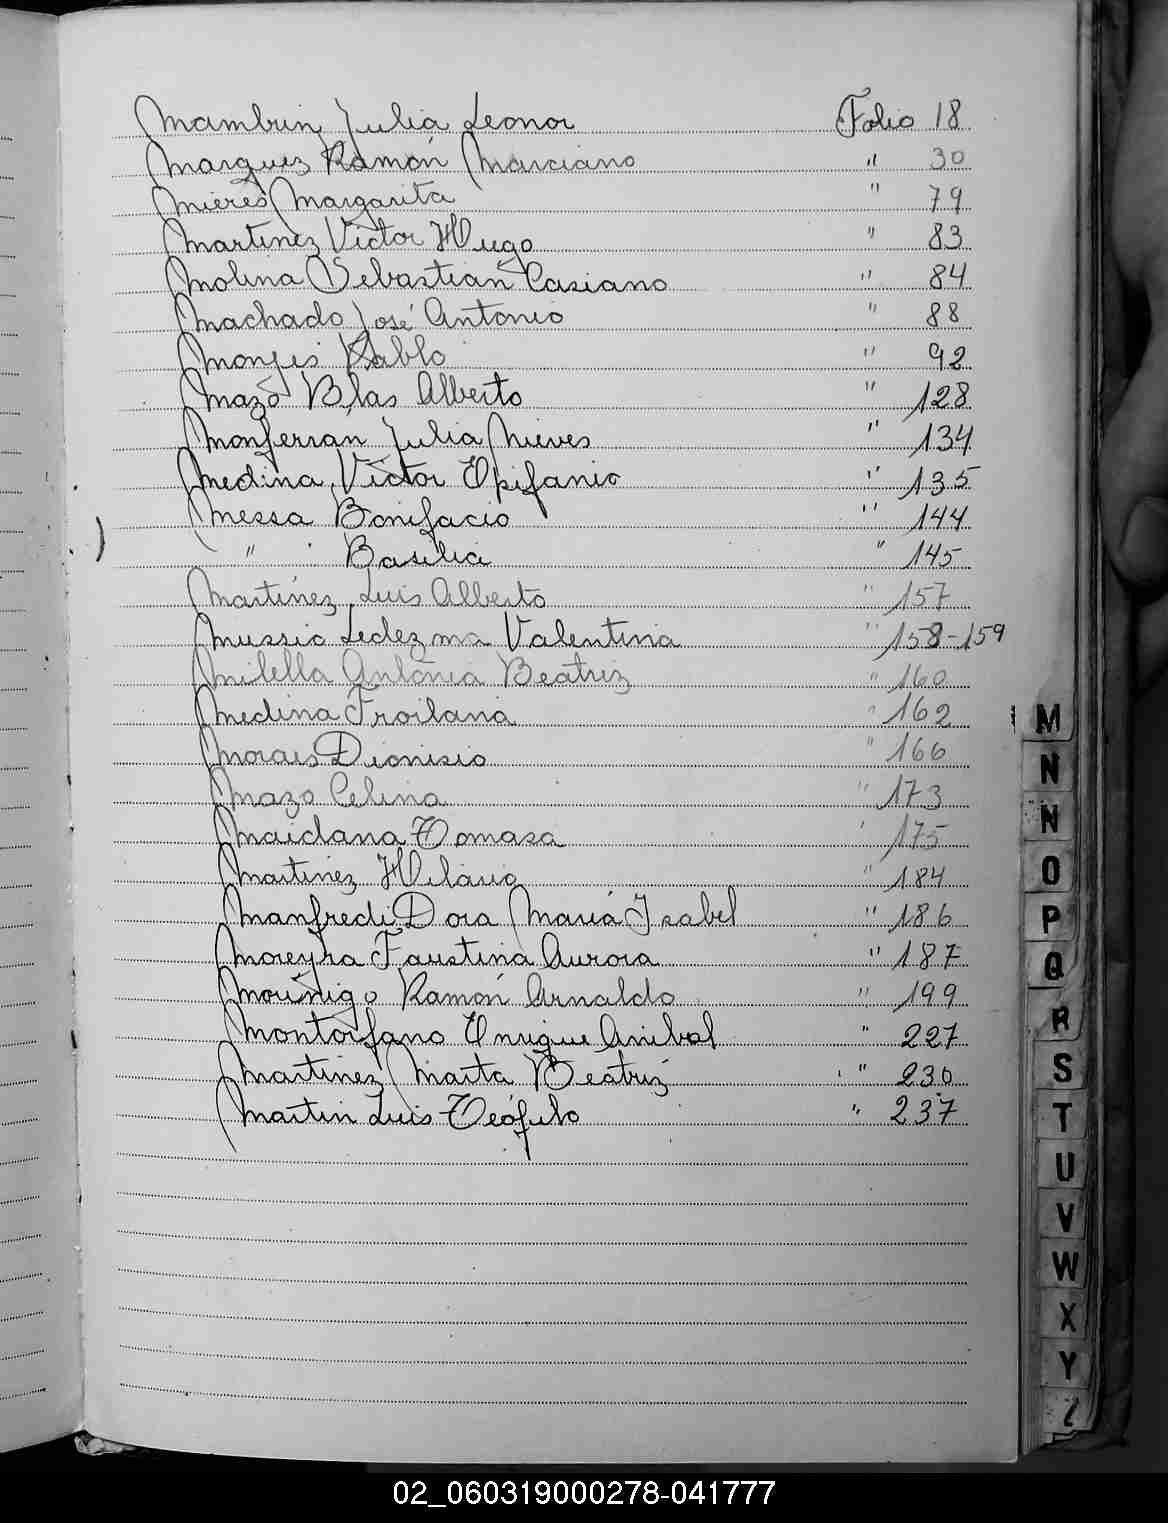 Mambrin Julia Leonor Folio 18
Marquez Ramón Marciano " 30
Mieres Margarita " 79
Martinez Victor Hugo " 83
Molina Sebastián Casiano " 84
Machado José Antonio " 88
Monjes Pablo " 92
Mazo Blas Alberto " 128
Monferran Julia Nieves " 134
Medina Victor Epifanio " 135
Messa Bonifacio " 144
" Basilia " 145
Martínez Luis Alberto " 157
Mussio Ledezma Valentina " 158-159
Milella Antonia Beatriz " 160
Medina Froilana " 162
Morais Dionisio " 166
Mazo Celina " 173
Maidana Tomasa " 175
Martinez Hilario " 184
Manfredi Dora María Isabel " 186
Moreyra Faustina Aurora " 187
Mouriñigo Ramón Arnaldo " 199
Montorfano Enrique Anibal " 227
Martinez Marta Beatriz " 230
Martin Luis Teófilo " 237
M
N
N
O
P
Q
R
S
T
U
V
W
X
Y
Z
02_060319000278-041777